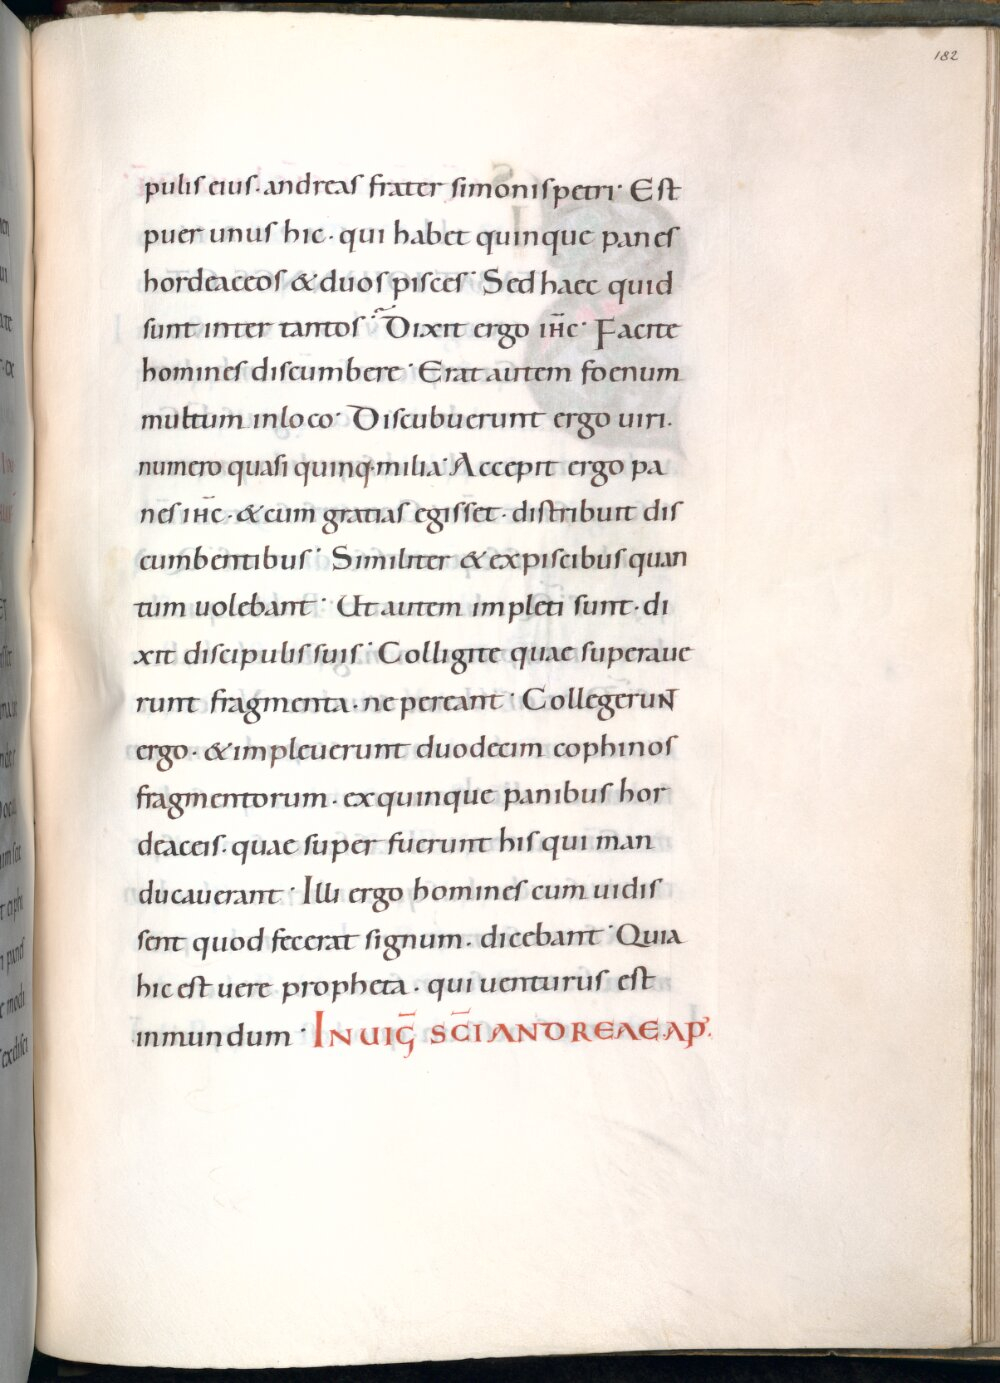 182
pulis eius. andreas frater simonis petri· Est
puer unus hic· qui habet quinque panes
hordeaceos & duos pisces· Sed haec quid
sunt inter tantos· Dixit ergo ihc̄· Facite
homines discumbere· Erat autem foenum
multum inloco· Discubuerunt ergo uiri.
numero quasi quinq· milia· Accepit ergo pa
nes ihc̄· & cum gratias egisset· distribuit dis
cumbentibus· Similiter & expiscibus quan
tum uolebant· Ut autem impleti sunt· di
xit discipulis suis· Colligite quae superaue
runt fragmenta· ne pereant· Collegerunt
ergo· & impleuerunt duodecim cophinos
fragmentorum· exquinque panibus hor
deaceis. quae super fuerunt his qui man
ducauerant· Illi ergo homines cum uidis
sent quod fecerat signum· dicebant· Quia
hic est uere propheta· qui uenturus est
inmundum· IN UIḠ SC̄I ANDREAE AP̄·